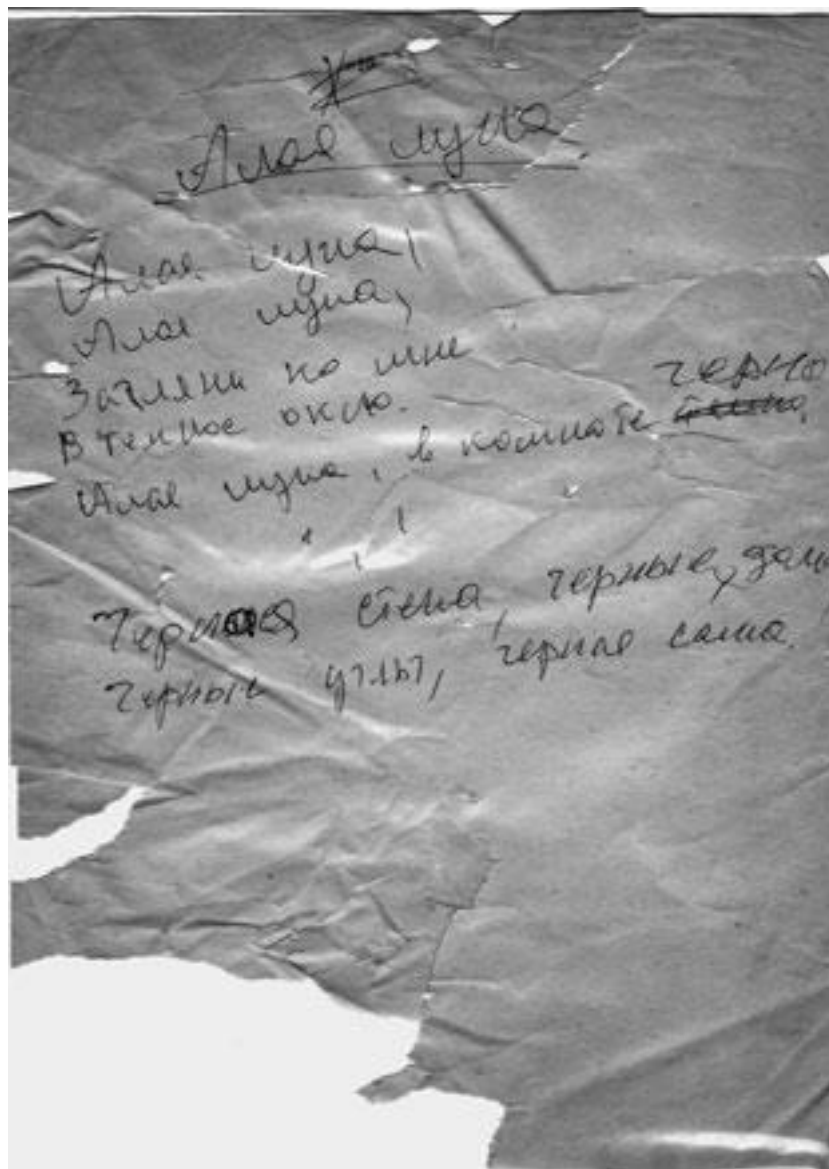 Алая луна
Алая луна,
Алая луна,
Загляни ко мне
В темное окно.
Алая луна, в комнате черно
Черная стена, черные дома
Черные углы, черная сама.